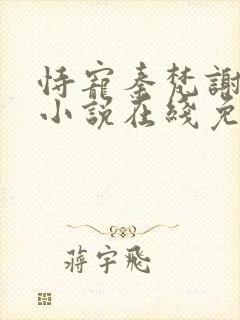 恃寵秦梵謝
小說在綫免
蔣宇飛